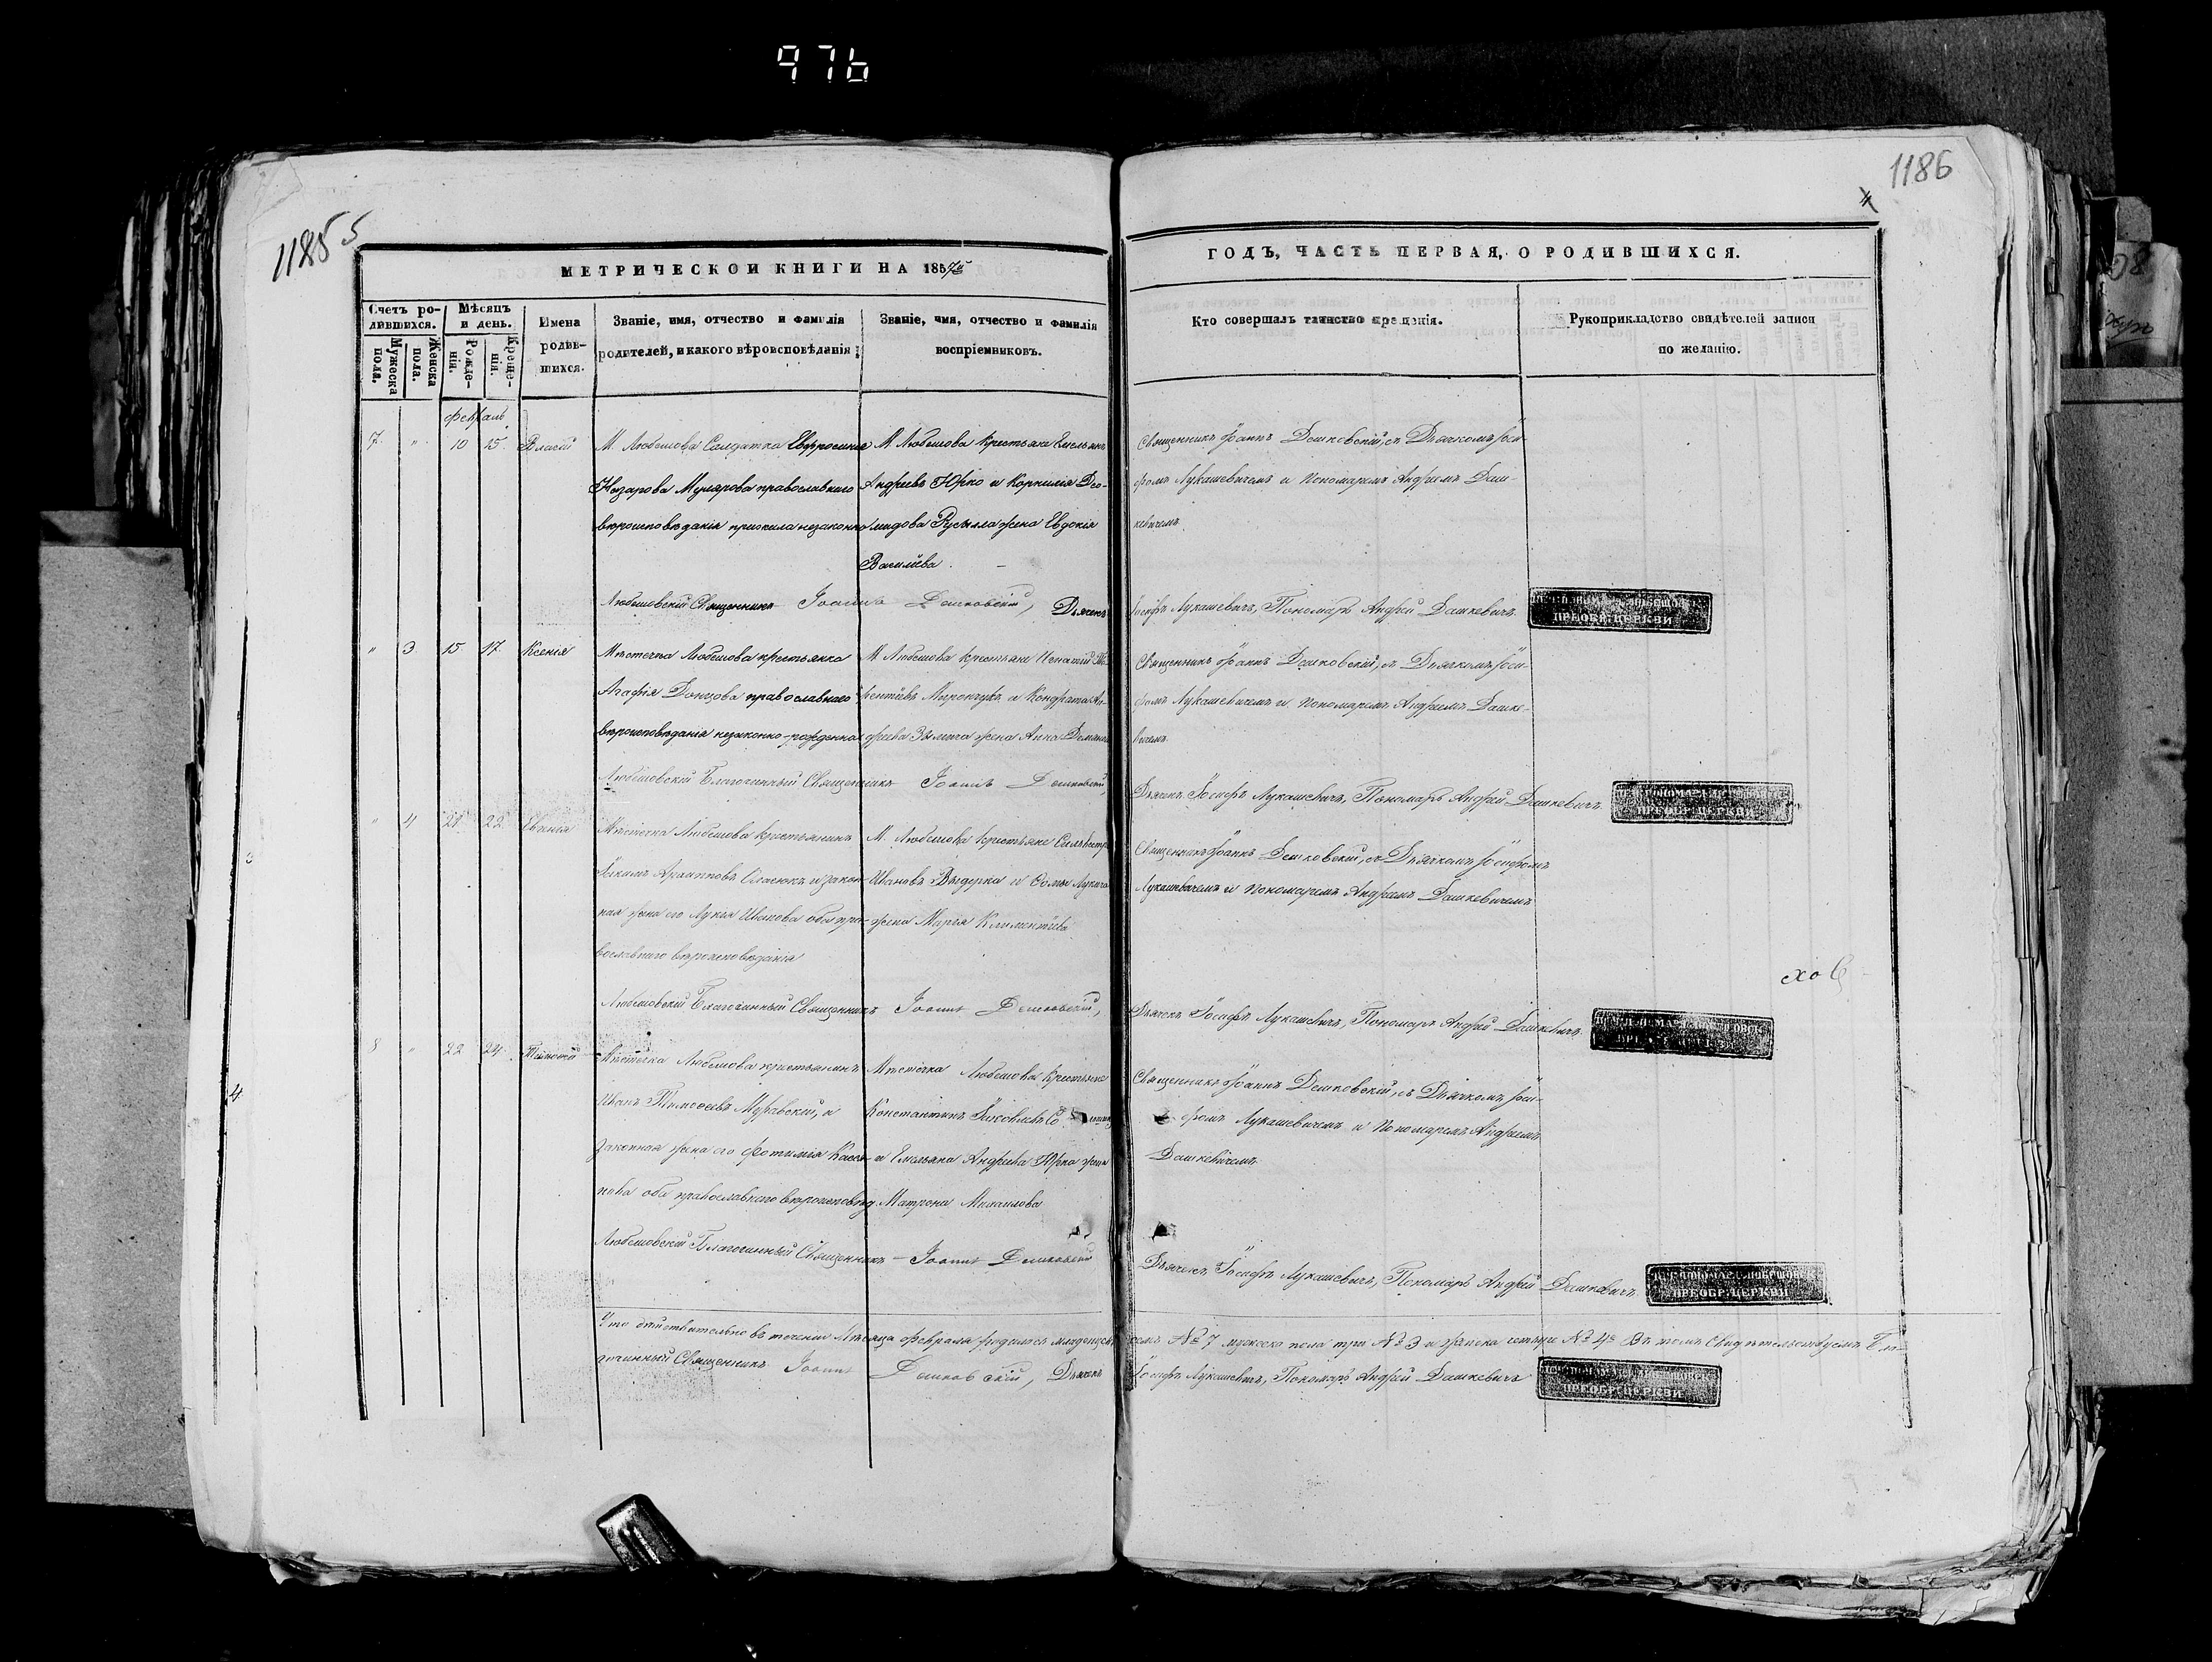 976
1185
5
1186
4
МЕТРИЧЕСКОЙ КНИГИ НА 1857й
ГОДЪ, ЧАСТЬ ПЕРВАЯ, О РОДИВШИХСЯ.
Счетъ ро-
дившихся.
Мужеска
пола.
Женска
пола.
Мѣсяцъ
и день.
Рожде-
нія.
Креще-
нія.
Имена
родив-
шихся.
Званіе, имя, отчество и фамилія
родителей, и какого вѣроисповѣданія
Званіе, имя, отчество и фамилія
воспріемниковъ.
Кто совершалъ таинство крещенія.
Рукоприкладство свидѣтелей записи
по желанію.
февраль
7 " 10 15 Власій
М. Любешова Салдатка Евфросинія
Назарова Мулярова православнаго
вѣроисповѣданія прижила незаконно
М. Любешова крестьяне Емельянъ
Андреевъ Юрко и Корнилія Део-
мидова жена Евдокія
Васильева.
Священникъ Іоаннъ Дешковскій, съ Дьячкомъ Іоси-
фомъ Лукашевичемъ и Пономаремъ Андреемъ Даш-
кевичемъ
Любешовскій Священникъ Іоаннъ Дешковскій, Дьячекъ
Іосифъ Лукашевичъ, Пономарь Андрей Дашкевичъ
ПРЕОБР. ЦЕРКВИ
" 3 15 17 Ксенія
Мѣстечка Любешова крестьянка
Агафія Донцова православнаго
вѣроисповѣданія незаконно-рожденна
М. Любешова крестьяне Игнатій
Мирончукъ и Кондрата Ан-
дреева жена Анна
Священникъ Іоаннъ Дешковскій, съ Дьячкомъ Іоси-
фомъ Лукашевичемъ и Пономаремъ Андреемъ Дашке-
вичемъ
Любешовскій Благочинный Священникъ Іоаннъ Дешковскій,
Дьячекъ Іосифъ Лукашевичъ, Пономарь Андрей Дашкевичъ
ПРЕОБР. ЦЕРКВИ
" 4 21 22 Евгенія
Мѣстечка Любешова крестьянинъ
Іакимъ Архиповъ Власюкъ и закон-
ная жена его Лукія Иванова оба пра-
вославнаго вѣроисповѣданія
М. Любешова крестьяне
Ивановъ и Фомы
жена Марія Климентіева
Священникъ Іоаннъ Дешковскій, съ Дьячкомъ Іосифомъ
Лукашевичемъ и Пономаремъ Андреемъ Дашкевичемъ
Любешовскій Благочинный Священникъ Іоаннъ Дешковскій,
Дьячекъ Іосифъ Лукашевичъ, Пономарь Андрей Дашкевичъ
8 " 22 24 Тимофей
Мѣстечка Любешова крестьянинъ
Иванъ Тимофеевъ Муравскій, и
законная жена его Фотинія Касья-
нова оба православнаго вѣроисповѣд.
Мѣстечка Любешова крестьяне
Константинъ Яковлевъ
и Емельяна Андреева Юрко жена
Матрона Михаилова
Священникъ Іоаннъ Дешковскій, съ Дьячкомъ Іоси-
фомъ Лукашевичемъ и Пономаремъ Андреемъ
Дашкевичемъ
Любешовскій Благочинный Священникъ Іоаннъ Дешковскій
Дьячекъ Іосифъ Лукашевичъ, Пономарь Андрей Дашкевичъ
ПРЕОБР. ЦЕРКВИ
Что дѣйствительно въ теченіи Мѣсяца февраля родилось младенцевъ
семь №7 мужеска пола три №3 и женска четыре №4 Въ томъ Свидѣтельствуемъ Бла-
гочинный Священникъ Іоаннъ Дешковскій, Дьячекъ
Іосифъ Лукашевичъ, Пономарь Андрей Дашкевичъ
ПРЕОБР. ЦЕРКВИ
4